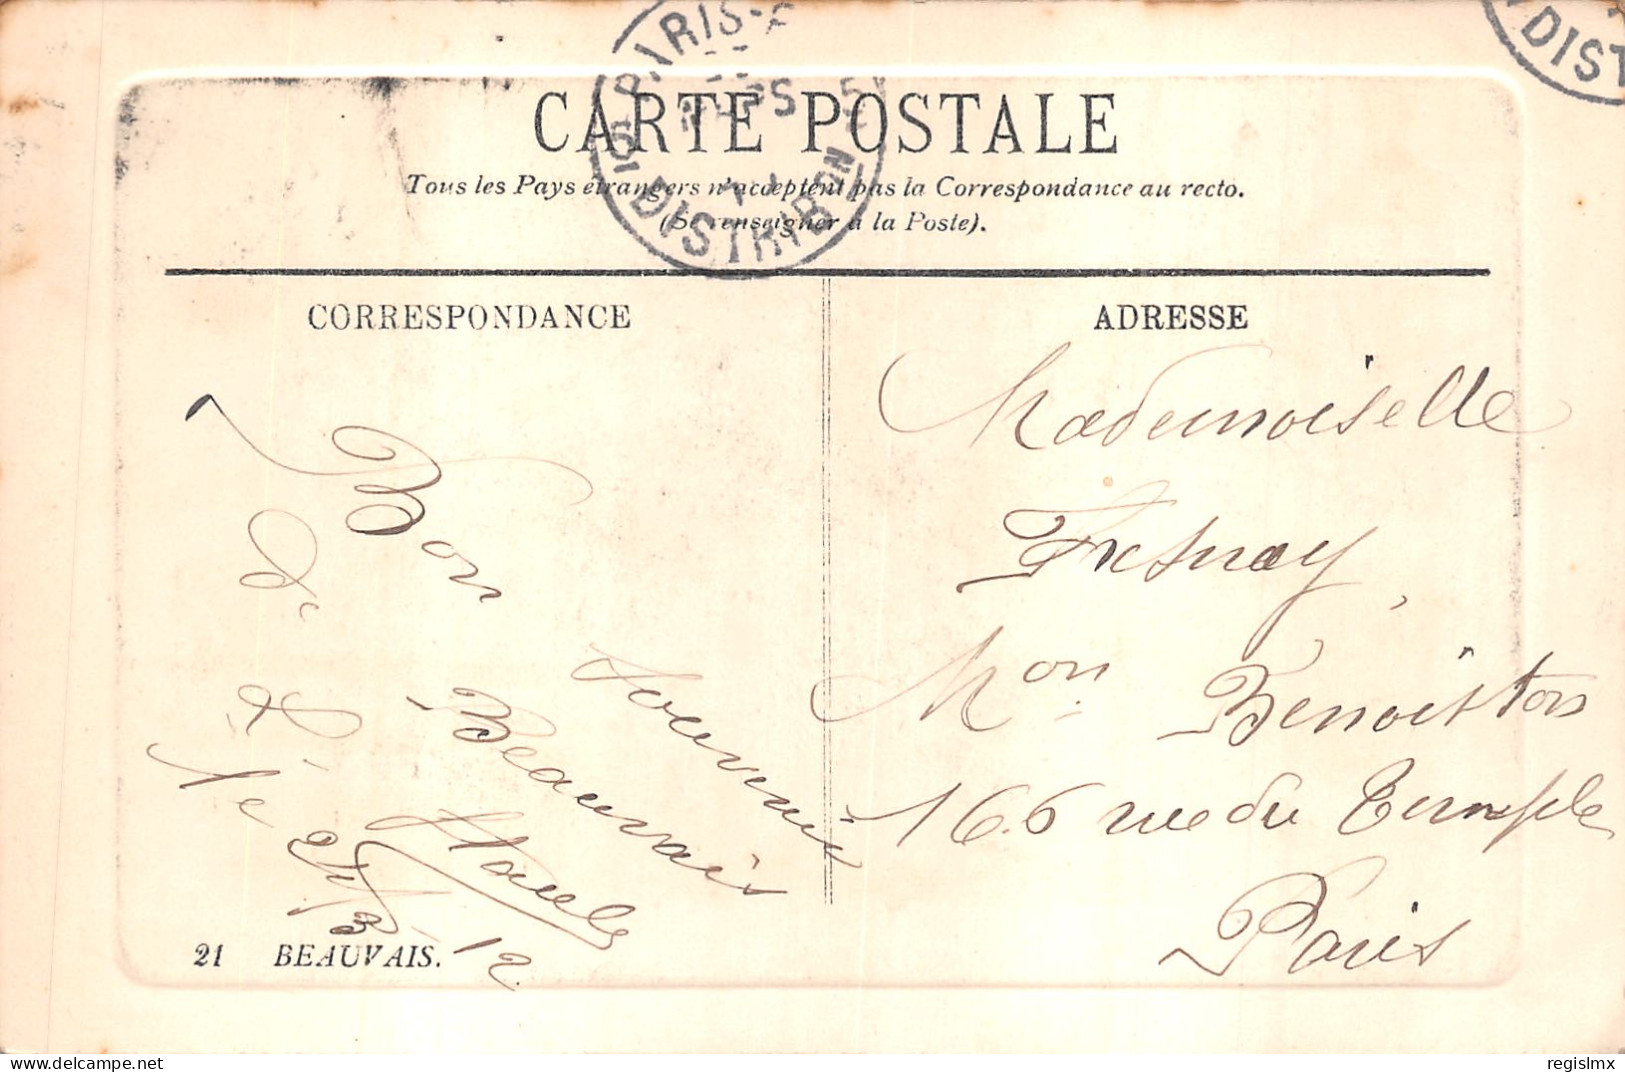 PARIS
DISTRIB
DIST
CARTE POSTALE
Tous les Pays étrangers n'acceptent pas la Correspondance au recto.
(Se renseigner à la Poste).
CORRESPONDANCE
Bon Souvenir
de Beauvais
le 12
21 BEAUVAIS.
ADRESSE
Mademoiselle
Fresnay,
Mon Benoiston
166 rue du Temple
Paris
delcampe.net
regislmx